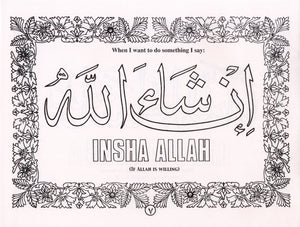 When I want to do something I say:
إِنْ شَاءَ اللَّهُ
INSHA ALLAH
(IF ALLAH IS WILLING)
٧